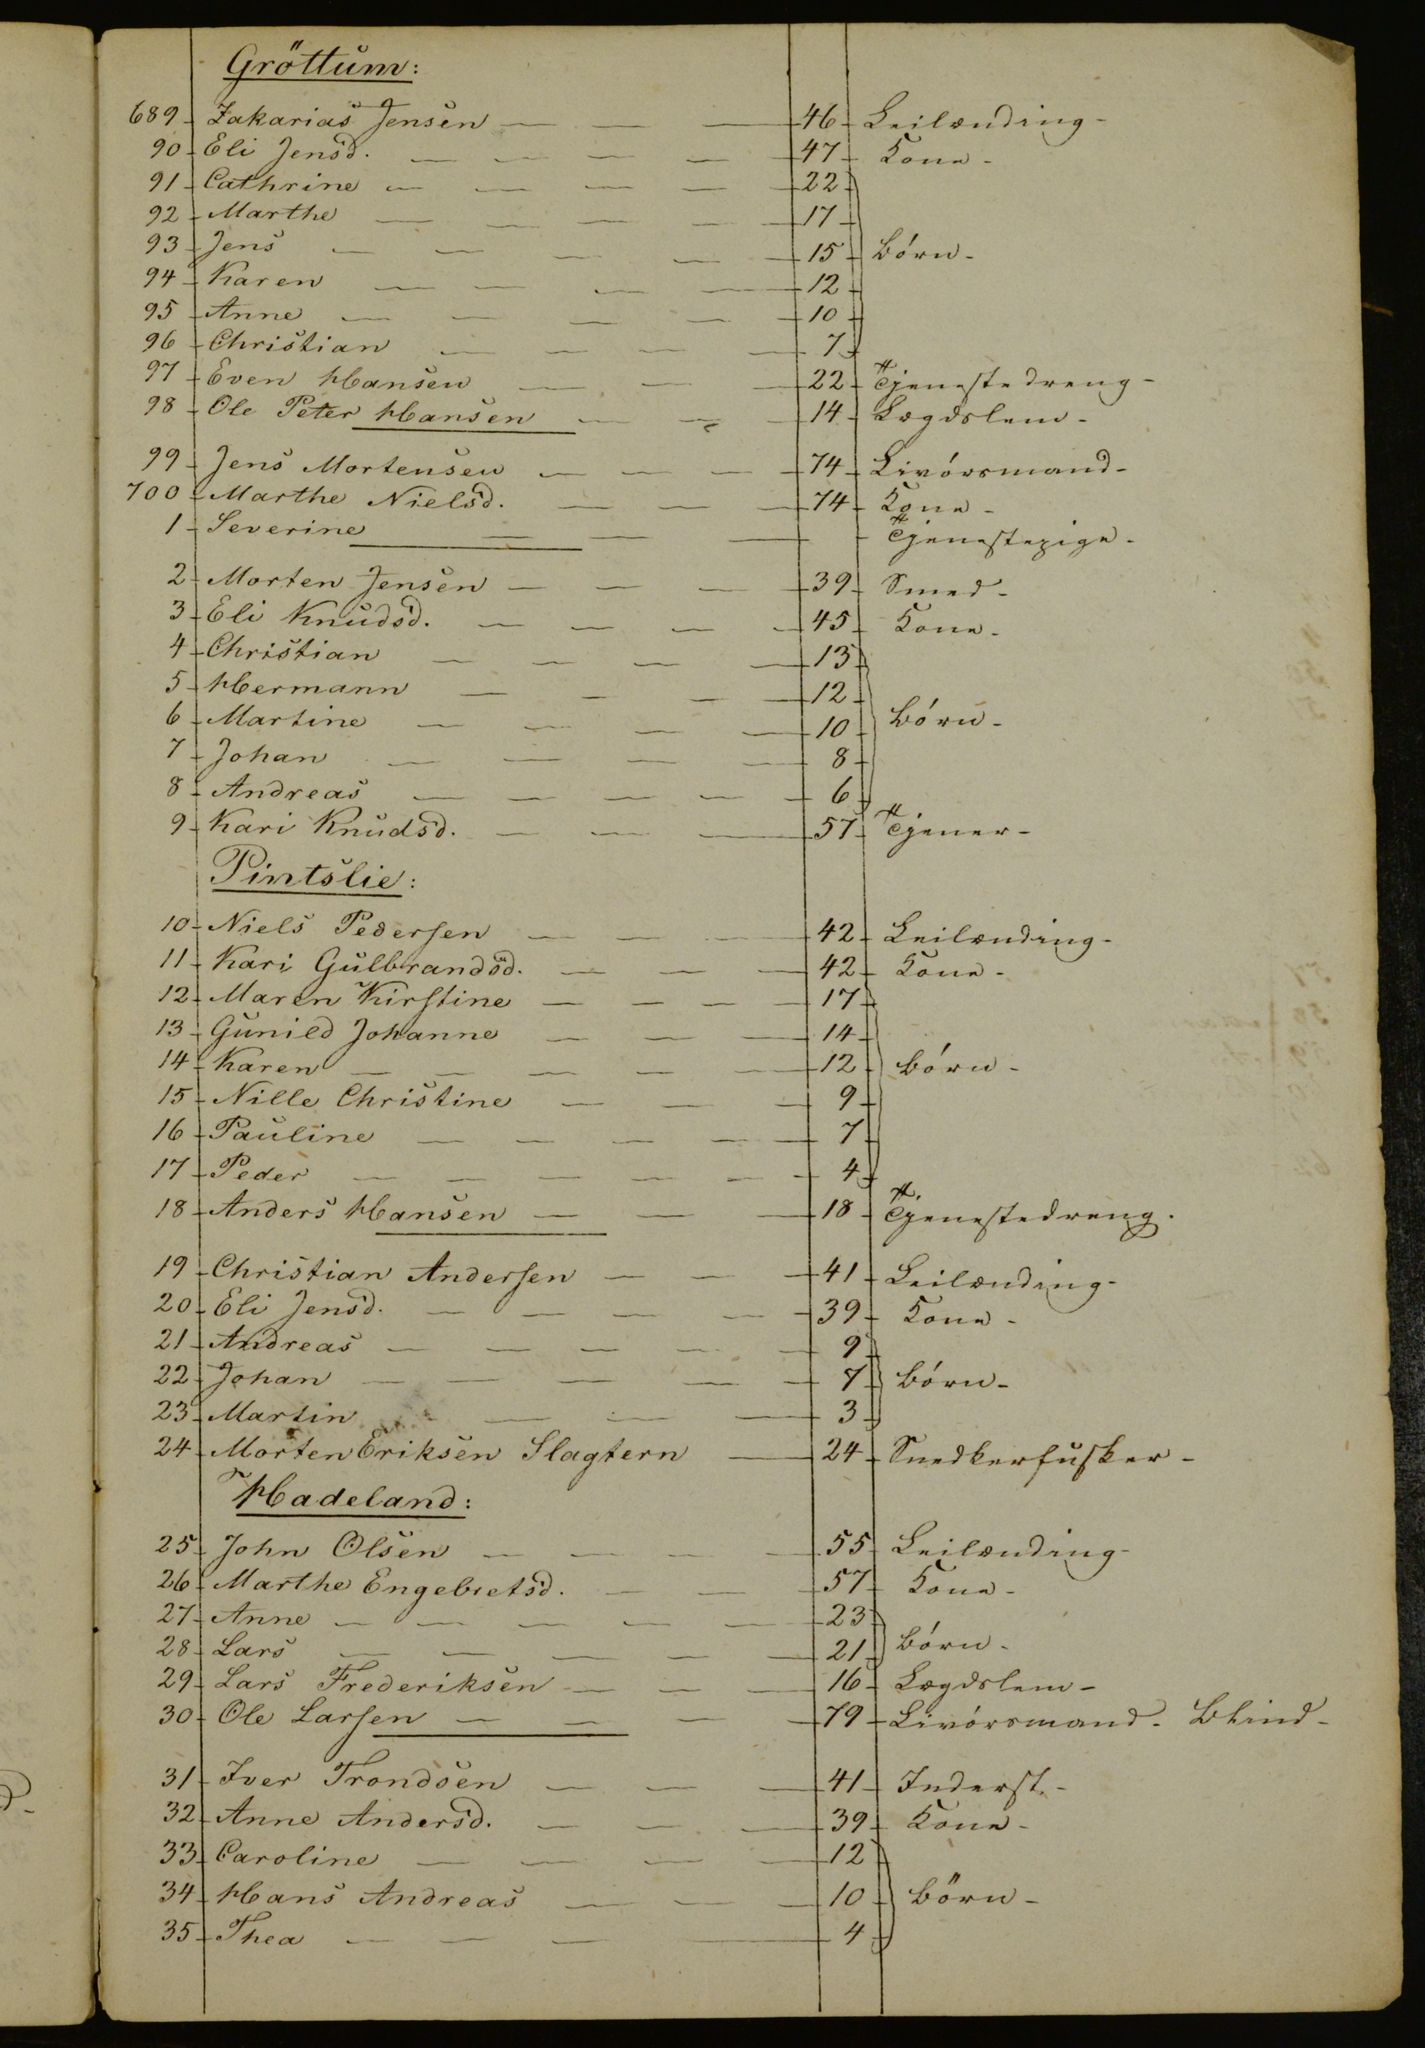 Gröttum:
689 Zakarias Jensen 46 Leilænding
90 Eli Jensd. 47 Kone
91 Cathrine 22
92 Marthe 17
93 Jens 15 Børn
94 Karen 12
95 Anne 10
96 Christian 7
97 Even Hansen 22 Tjenestedreng
98 Ole Peter Hansen 14 Lægdslem
99 Jens Mortensen 74 Livørsmand
700 Marthe Nielsd. 74 Kone
1 Severine Tjenestepige
2 Morten Jensen 39 Smed
3 Eli Knudsd. 45 Kone
4 Christian 13
5 Hermann 12
6 Martine 10 Børn
7 Johan 8
8 Andreas 6
9 Kari Knudsd. 57 Tjener
Pintslie:
10 Niels Pedersen 42 Leilænding
11 Kari Gulbrandsd. 42 Kone
12 Maren Kirstine 17
13 Gunild Johanne 14
14 Karen 12 Børn
15 Nille Christine 9
16 Pauline 7
17 Peder 4
18 Anders Hansen 18 Tjenestedreng.
19 Christian Andersen 41 Leilænding
20 Eli Jensd. 39 Kone
21 Andreas 9
22 Johan 7 Børn
23 Martin 3
24 Morten Eriksen Slagtern 24 Snedkerfusker
Hadeland:
25 John Olsen 55 Leilænding
26 Marthe Engebretsd. 57 Kone
27 Anne 23
28 Lars 21 Børn
29 Lars Frederiksen 16 Lægdslem
30 Ole Larsen 79 Livørsmand. Blind
31 Iver Trondsen 41 Inderst.
32 Anne Andersd. 39 Kone
33 Caroline 12
34 Hans Andreas 10 Börn
35 Thea 4